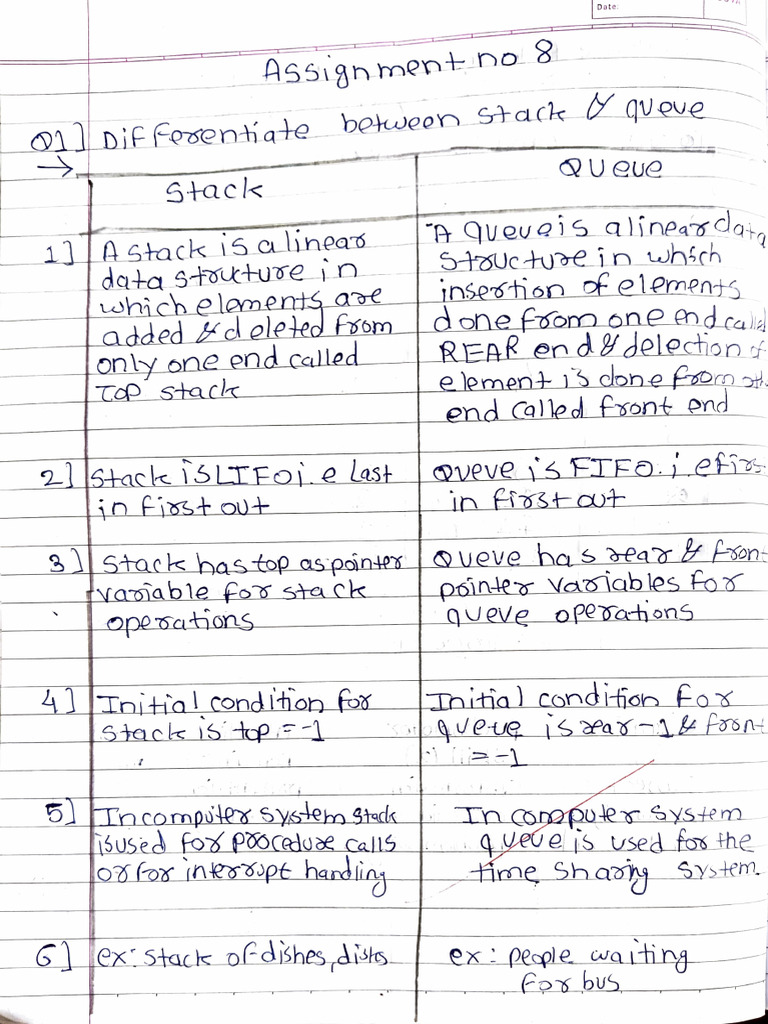 Date:
Assignment no 8
Q1] Differentiate between stack & queue
→
Stack
Queue
1] A stack is a linear
data structure in
which elements are
added & deleted from
only one end called
Top stack
A queue is a linear data
structure in which
insertion of elements
done from one end called
REAR end & delection of
element is done from oth
end called front end
2] Stack is LIFO i.e Last
in first out
Queue is FIFO. i.e firs
in first out
3] Stack has top as pointer
variable for stack
operations
Queue has rear & front
pointer variables for
queue operations
4] Initial condition for
stack is top = -1
Initial condition for
queue is rear -1 & front
= -1
5] In computer system stack
is used for procedure calls
or for interrupt handling
In computer system
queue is used for the
time sharing system.
6] ex: stack of dishes,
ex: people waiting
for bus